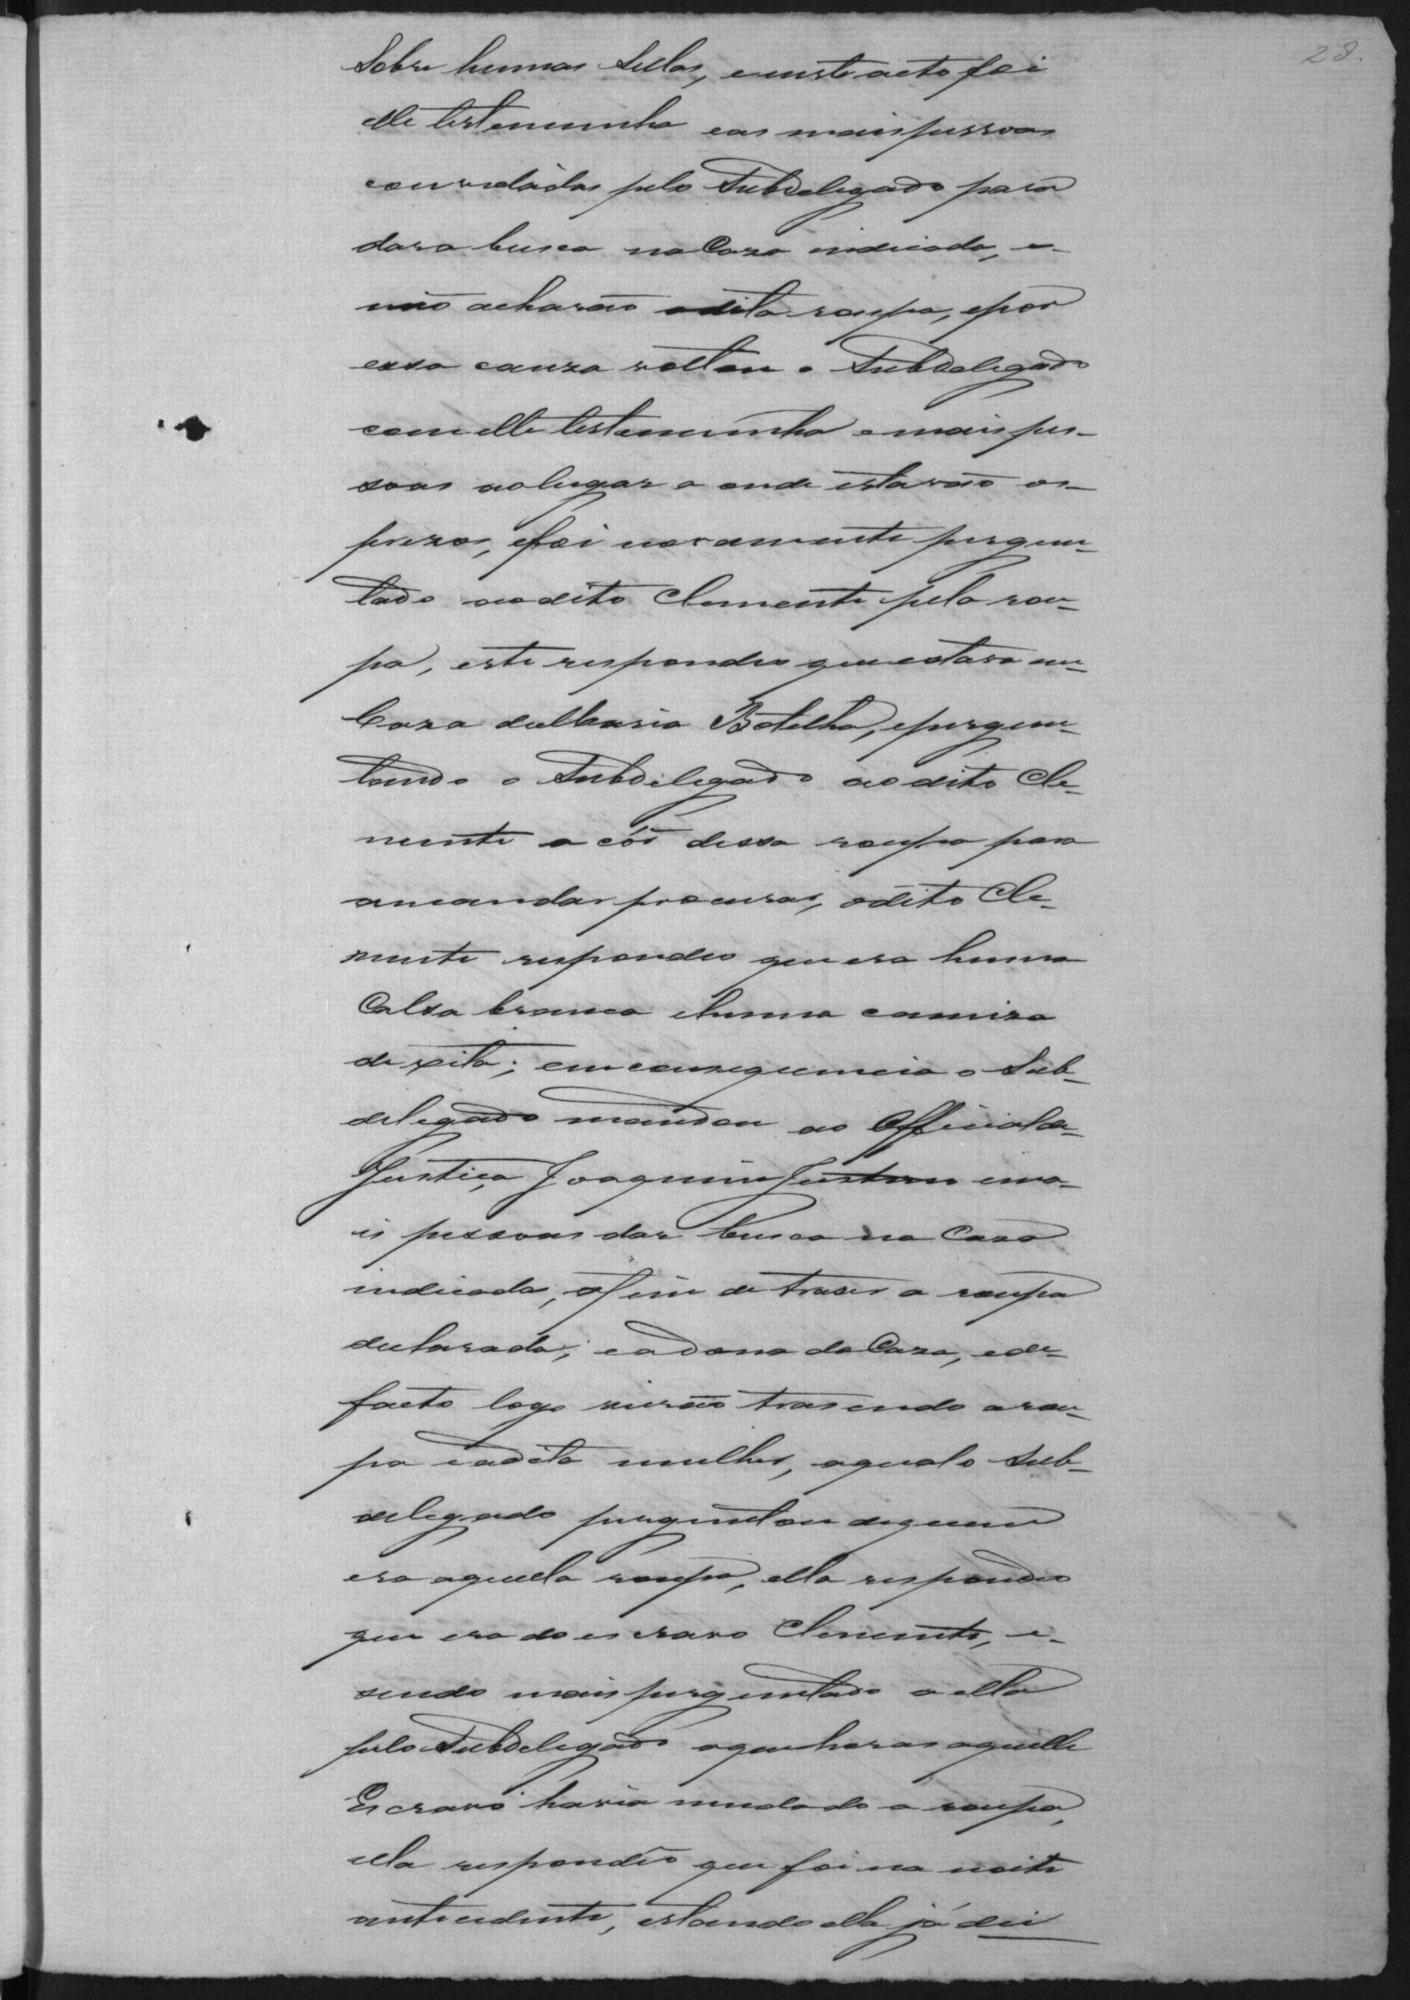 28.
Sobre humas Sellas, e neste acto foi
elle testemunha e as mais pessoas
convidadas pelo Subdelegado para
dar a busca na Caza indicada, e
não acharão a dita roupa, e por
essa cauza voltou o Subdelegado
com elle testemunha e mais pes-
soas ao lugar a onde estavão os
prezos, e foi novamente pergun-
tado ao dito Clemente pela rou-
pa, este respondeo que estava em
Caza de Maria Botelha, e pergun-
tando o Subdelegado ao dito Cle-
mente a côr dessa roupa para
a mandar procurar, o dito Cle-
mente respondeo que era huma
Calsa branca e huma camiza
de xita; em consequencia o Sub-
delegado mandou ao Official de
Justiça Joaquim e ma-
is pessoas dar busca na Caza
indicada, a fim de traser a roupa
declarada, e a dona da Caza, e de
facto logo vierão trasendo a rou-
pa e a dita mulher, a qual o Sub-
delegado perguntou de quem
era aquella roupa, ella respondeo
que era do escravo Clemente, e
sendo mais perguntado a ella
pelo Subdelegado a que horas aquelle
Escravo havia mudado a roupa,
ella respondêo que foi na noite
antecedente, estando ella já dei